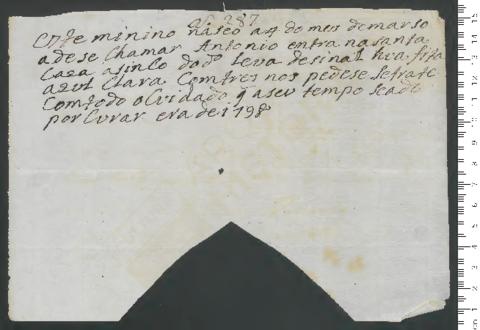 nº 287
Este minino naseo a 4 do mes demarso
adese Chamar Antonio entra nasanta
Caza asinco dodº Leva desinal hua fita
azul Clara Comtres nos pedese setrate
Comtodo o Cuidado q aseu tempo seade
porCurar era de 1798